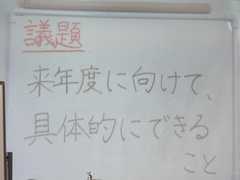 議題
来年度に向けて、
具体的にできる
こと